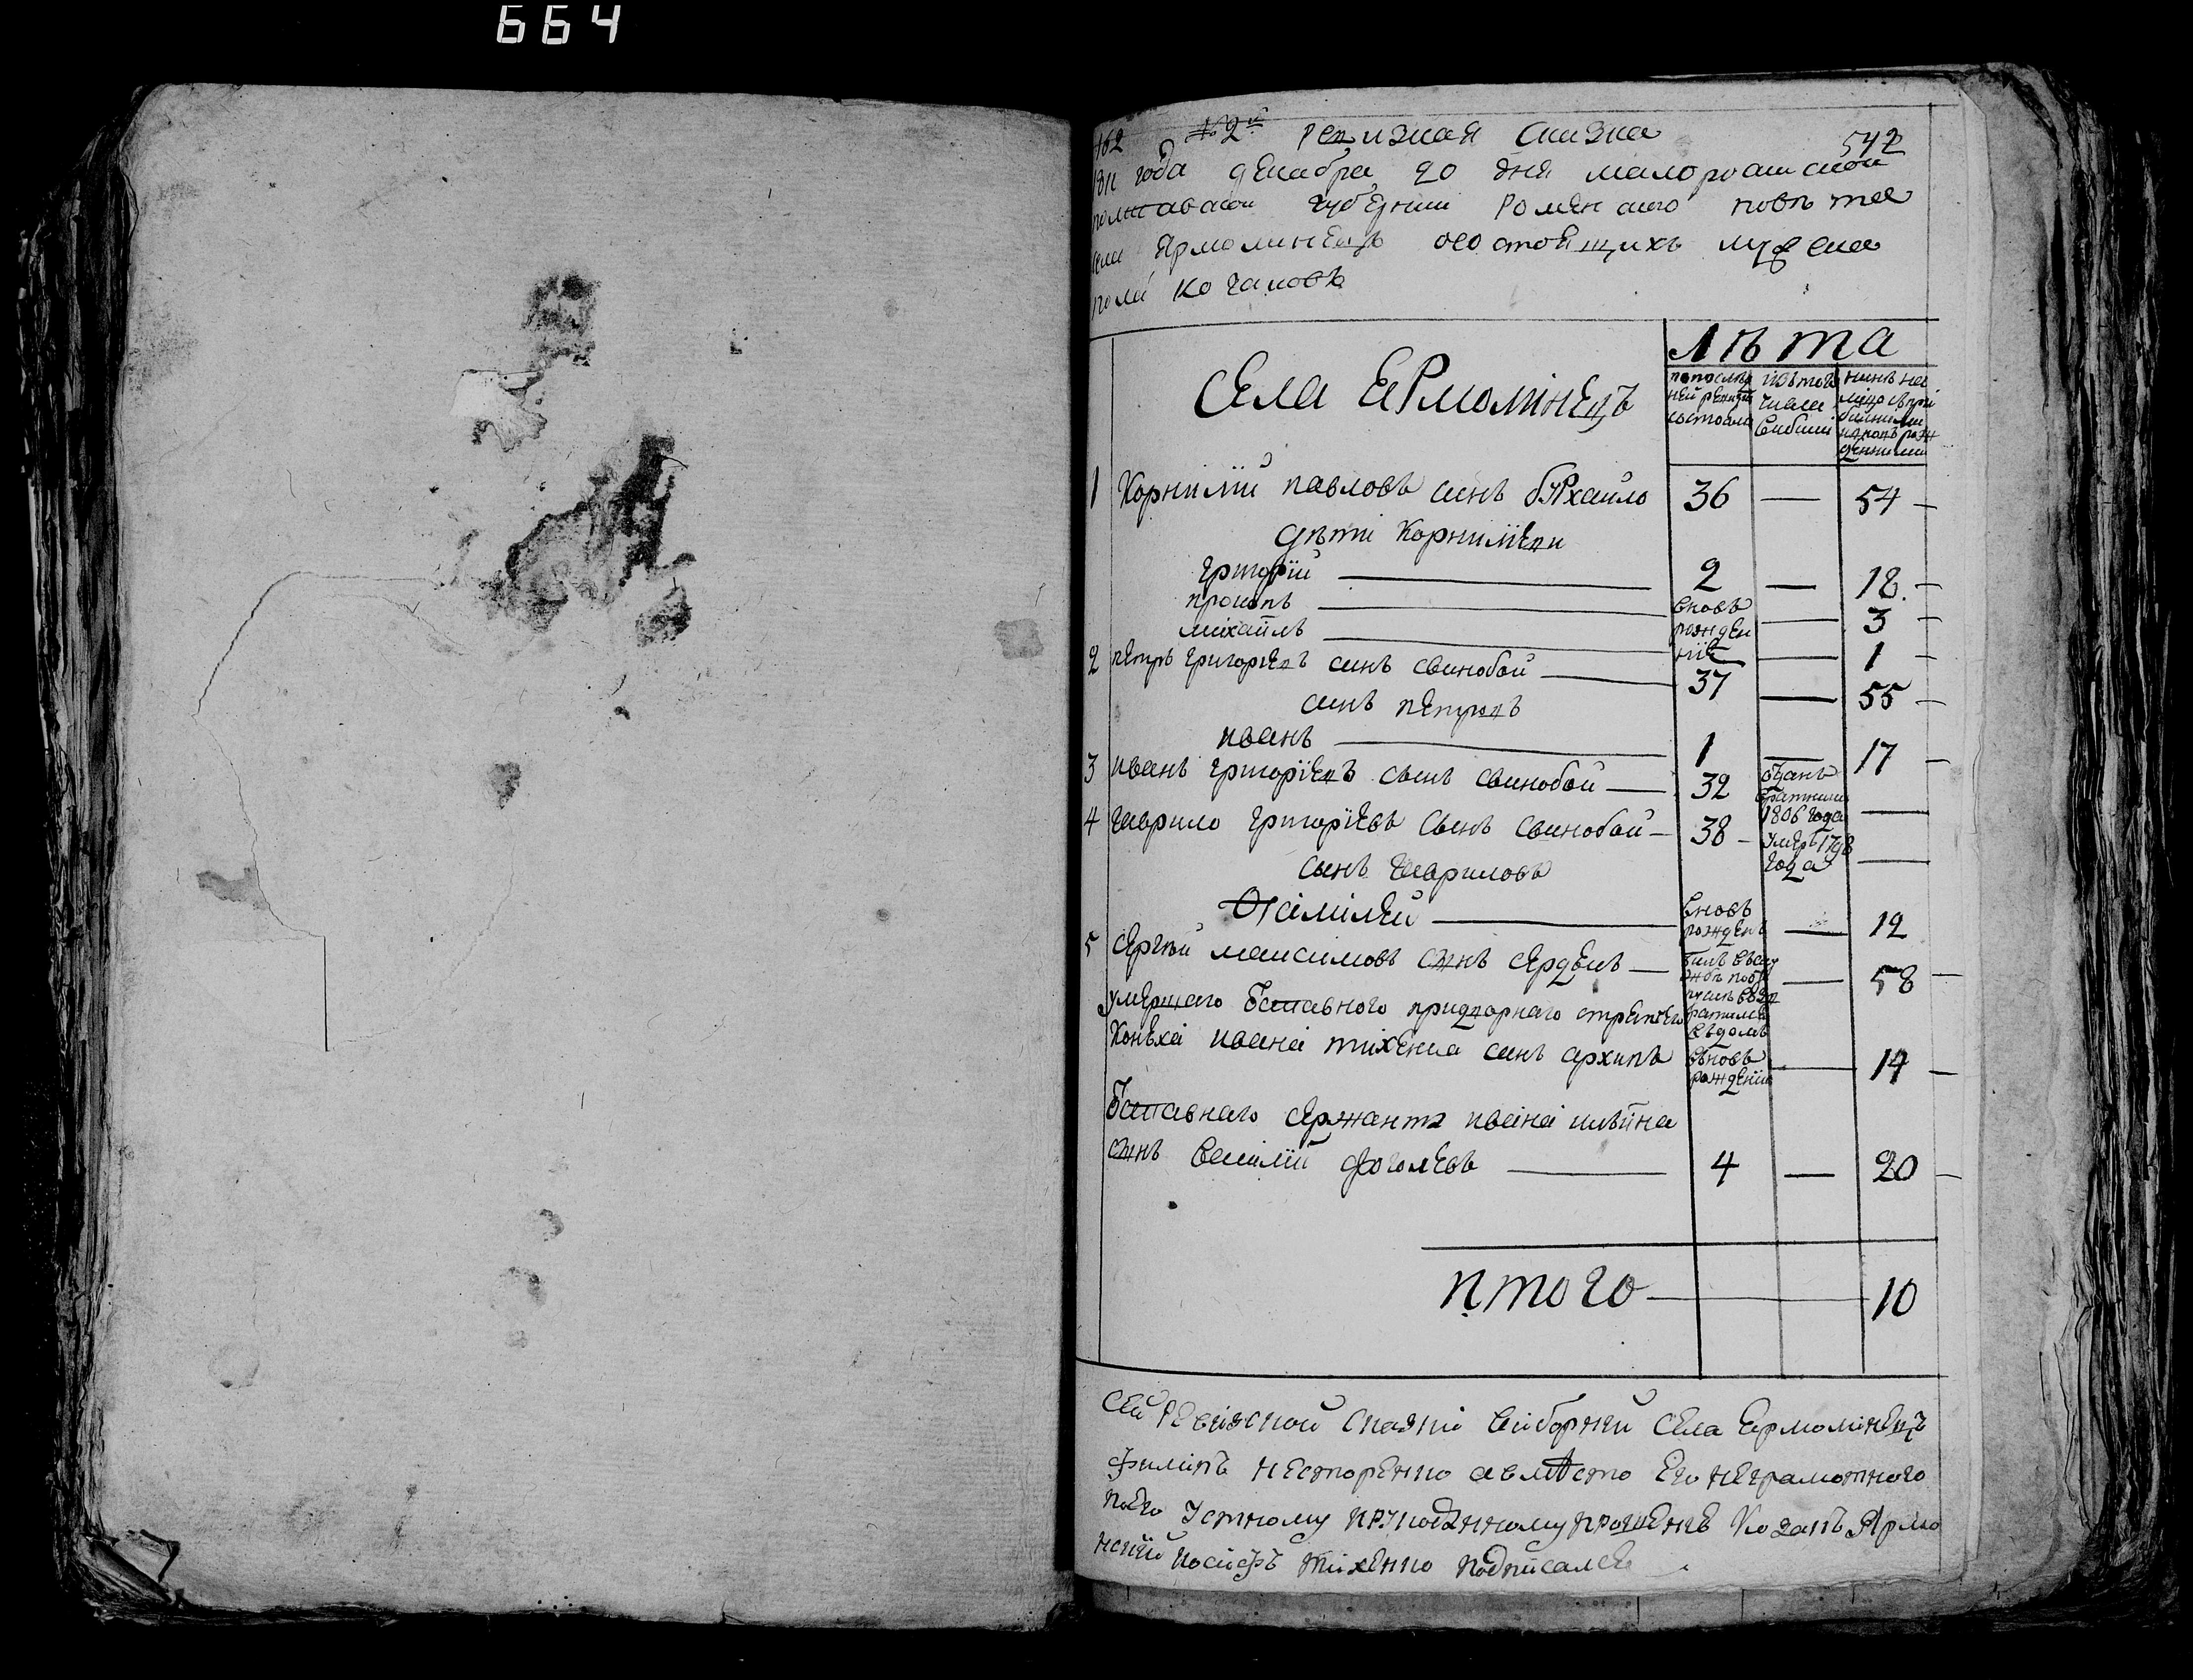 664
162 №2й Ревизкая Сказка 542
1811 года декабра 20 дня малоросийской
полтавской губернии Роменского повѣта
села Ярмолинець состоящихъ мужеска
пола козаковъ
Села Ермолінець
Лѣта
по послед
ней ревизии
состояло
изъ того
числа
выбыли
нинѣ на
лицо
1 Корнилій павловъ синъ бурхайло 36 — 54
дѣти Корниліеви
Григорій — 2 — 18
прокопъ — вновь — 3
михайлъ — рожден
ніе — 1
2 петръ григориевъ синъ свинобой — 37 — 55
синъ петровъ
иванъ — 1 — 17
3 иванъ григоріевъ сынъ свинобой — 32 отданъ
ратники
1806 года —
4 гаврило григоріевъ сынъ свинобой — 38 умеръ 1798
года —
сынъ гавриловъ
вновь
рожденъ — 12
5 Сергѣй максимовъ синъ сердекъ — 58
умершаго отставного придворнаго
ивана тихенка синъ архипъ вьновь
рожденій — 14
отставнаго сержанта ивана
синъ василій гоголевъ — 4 — 20
итого — 10
Сей Ревизской сказки виборний села Ермолінецъ
филипъ несторенко авмѣсто его неграмотного
по его устному прошению козакъ Ярмо
иосифъ тихенко подписался